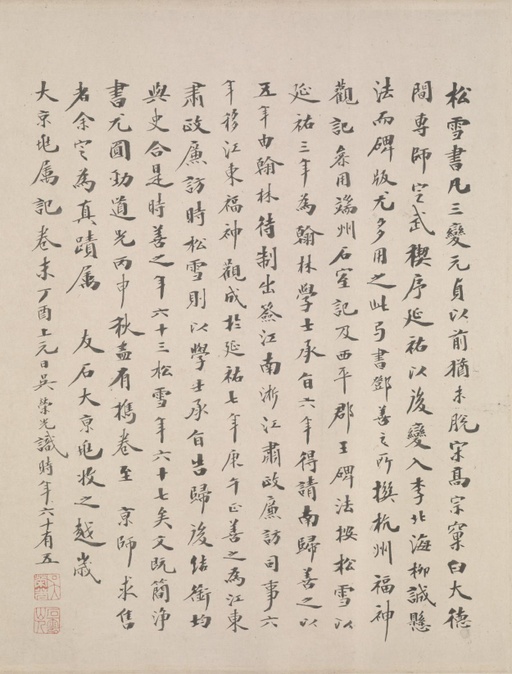 松雪書凡三變元貞以前猶未脫宋高宗窠臼大德
間專師定武禊序延祐以後變入李北海柳誠懸
法而碑版尤多用之此弓書鄧善之所撰杭州福神
觀記參用端州石室記及西平郡王碑法按松雪以
延祐三年為翰林學士承旨六年得請南歸善之以
五年由翰林待制出僉江南浙江肅政廉訪司事六
年移江東福神觀成於延祐七年庚午正善之為江東
肅政廉訪時松雪則以學士承旨告歸後結銜均
與史合是時善之年六十三松雪年六十七矣文既簡淨
書尤圓勁道光丙申秋盡有攜卷至 京師求售
者余定為真蹟屬 友石大京兆收之越歲
大京兆屬記卷末丁酉上元日吳榮光識時年六十有五